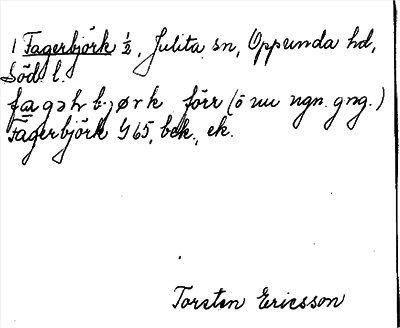 1 Fagerbjörk ½, Julita sn, Oppunda hd,
Söd. l.
fagər bjørk förr (ö nu ngn. gng.)
Fagerbjörk G 65, bek., ek.
Torsten Ericsson